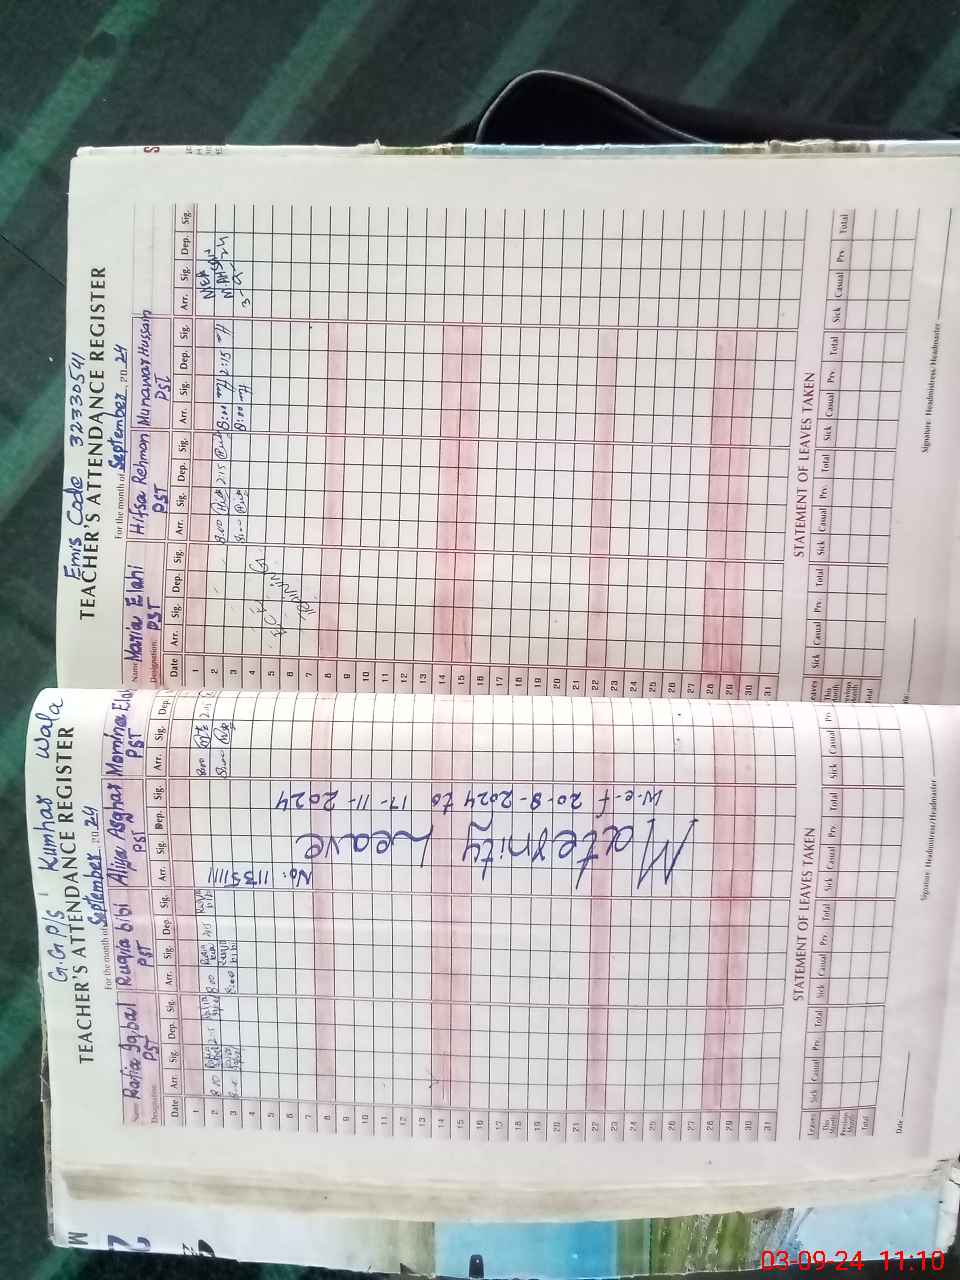 G.G P/S Kumhar Wala
TEACHER'S ATTENDANCE REGISTER
For the month of September 20 24
Name Razia Iqbal Ruqia bibi Aliya Asghar Momina Ela
Designation PST PST PST PST
Date Arr. Sig. Dep. Sig. Arr. Sig. Dep. Sig. Arr. Sig. Dep. Sig. Arr. Sig. Dep.
1
2 8:00 8:00 2:15 8:00
3 8:00 bibi
4
5
6
7
8
9
10
11
12
13
14
15
16
17
18
19
20
21
22
23
24
25
26
27
28
29
30
31
No: 1135111N
Maternity Leave
W-e-f 20-8-2024 to 17-11-2024
STATEMENT OF LEAVES TAKEN
Leaves Sick Casual Prv. Total Sick Casual Prv. Total Sick Casual Prv. Total Sick Casual Prv
This Month
Previous Month
Total
Date
Signature Headmistress/Headmaster
Emis Code 32330541
TEACHER'S ATTENDANCE REGISTER
For the month of September 20 24
Name Maria Elahi Hifsa Rehman Munawar Hussain
Designation PST PST PST
Date Arr. Sig. Dep. Sig. Arr. Sig. Dep. Sig. Arr. Sig. Dep. Sig. Arr. Sig. Dep. Sig.
1
2 8:00 2:15 8:00 2:15
3 8:00 8:00
4
5
6
7
8
9
10
11
12
13
14
15
16
17
18
19
20
21
22
23
24
25
26
27
28
29
30
31
STATEMENT OF LEAVES TAKEN
Leaves Sick Casual Prv. Total Sick Casual Prv. Total Sick Casual Prv. Total Sick Casual Prv Total
This Month
Previous Month
Total
Signature Headmistress/Headmaster
03-09-24 11:10